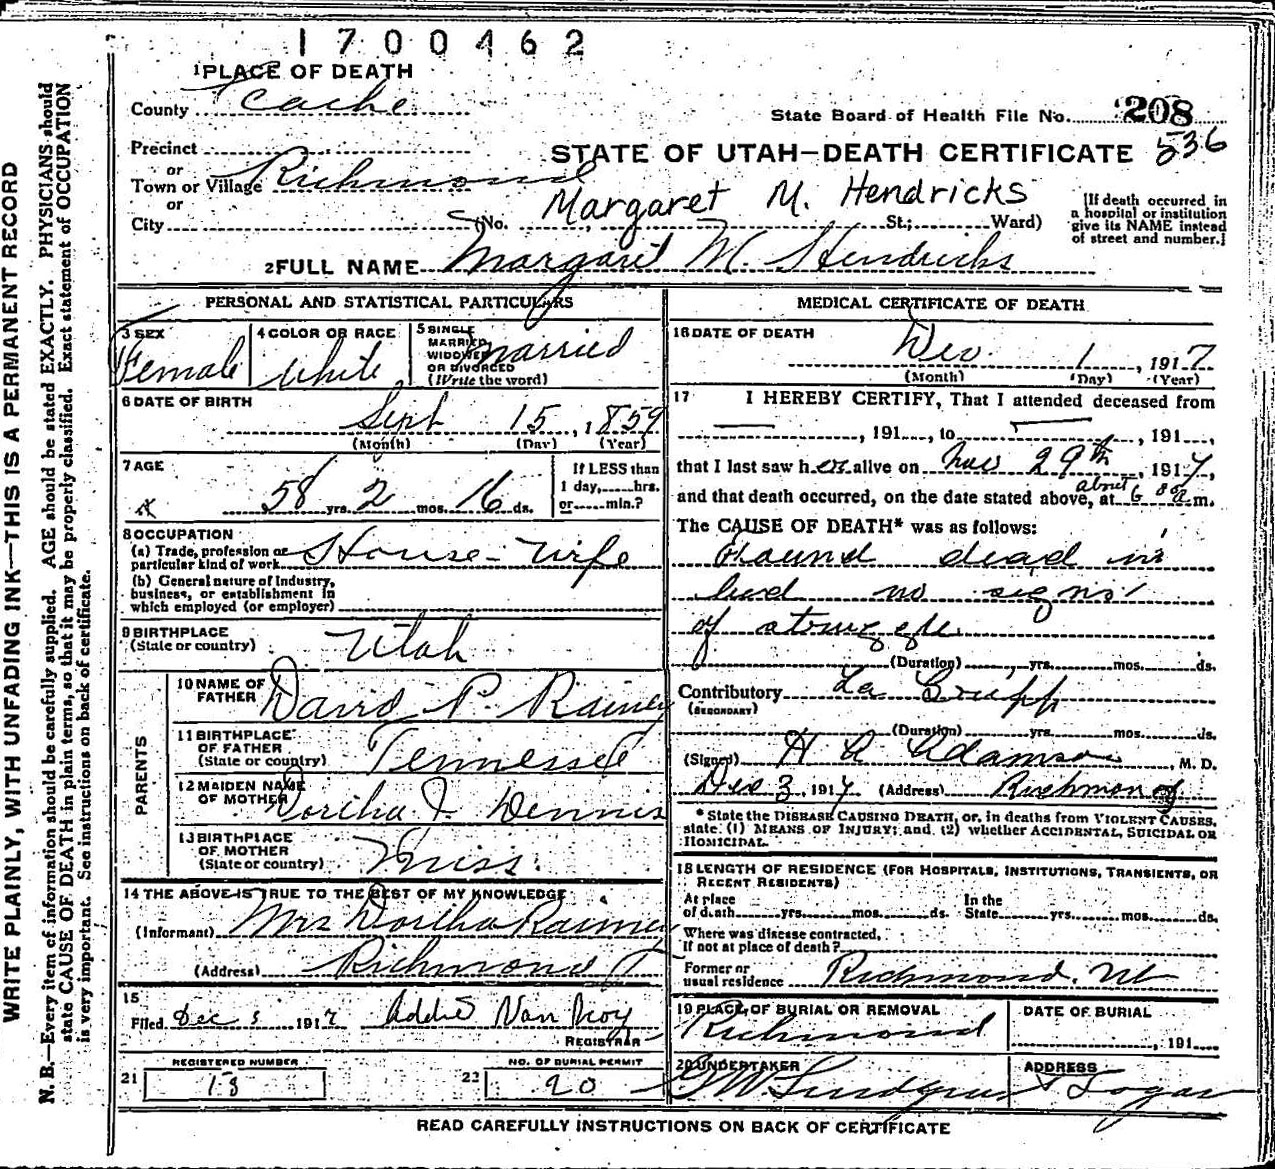 1700462
1 PLACE OF DEATH
County Cache
State Board of Health File No. 208
536
Precinct
or
Town or Village Richmond
or
City
STATE OF UTAH—DEATH CERTIFICATE
Margaret M. Hendricks
(No. St.; Ward)
[If death occurred in
a hospital or institution
give its NAME instead
of street and number.]
2 FULL NAME Margaret M. Hendricks
PERSONAL AND STATISTICAL PARTICULARS
3 SEX
Female
4 COLOR OR RACE
White
5 SINGLE
MARRIED
WIDOWED
OR DIVORCED
(Write the word)
Married
6 DATE OF BIRTH
Sept 15, 1859
(Month) (Day) (Year)
7 AGE
58 yrs. 2 mos. 16 ds.
If LESS than
1 day, hrs.
or min.?
8 OCCUPATION
(a) Trade, profession or
particular kind of work House-Wife
(b) General nature of Industry,
business, or establishment in
which employed (or employer)
9 BIRTHPLACE
(State or country) Utah
PARENTS
10 NAME OF
FATHER David P. Rainey
11 BIRTHPLACE
OF FATHER
(State or country) Tennessee
12 MAIDEN NAME
OF MOTHER Dortha J. Dennis
13 BIRTHPLACE
OF MOTHER
(State or country) Miss.
14 THE ABOVE IS TRUE TO THE BEST OF MY KNOWLEDGE
(Informant) Mrs Dortha Rainey
(Address) Richmond
15
Filed Dec 3 1917 Addie Van Noy
REGISTRAR
REGISTERED NUMBER
21 13
NO. OF BURIAL PERMIT
22 20
MEDICAL CERTIFICATE OF DEATH
16 DATE OF DEATH
Dec. 1, 1917
(Month) (Day) (Year)
17 I HEREBY CERTIFY, That I attended deceased from
, 191 , to , 191 ,
that I last saw her alive on Nov 29th, 1917,
and that death occurred, on the date stated above, at about 6 m.
The CAUSE OF DEATH* was as follows:
Found dead in
bed no signs
of
(Duration) yrs. mos. ds.
Contributory La Gripp
(SECONDARY)
(Duration) yrs. mos. ds.
(Signed) H A Adamson, M. D.
Dec 3, 1917 (Address) Richmond
* State the DISEASE CAUSING DEATH, or, in deaths from VIOLENT CAUSES,
state (1) MEANS OF INJURY; and (2) whether ACCIDENTAL, SUICIDAL OR
HOMICIDAL.
18 LENGTH OF RESIDENCE (FOR HOSPITALS, INSTITUTIONS, TRANSIENTS, OR
RECENT RESIDENTS)
At place
of death yrs. mos. ds.
In the
State yrs. mos. ds.
Where was disease contracted,
if not at place of death?
Former or
usual residence Richmond. Ut
19 PLACE OF BURIAL OR REMOVAL
Richmond
DATE OF BURIAL
, 191
20 UNDERTAKER
ADDRESS
Logan
READ CAREFULLY INSTRUCTIONS ON BACK OF CERTIFICATE
WRITE PLAINLY, WITH UNFADING INK—THIS IS A PERMANENT RECORD
N. B.—Every item of information should be carefully supplied. AGE should be stated EXACTLY. PHYSICIANS should
state CAUSE OF DEATH in plain terms, so that it may be properly classified. Exact statement of OCCUPATION
is very important. See instructions on back of certificate.